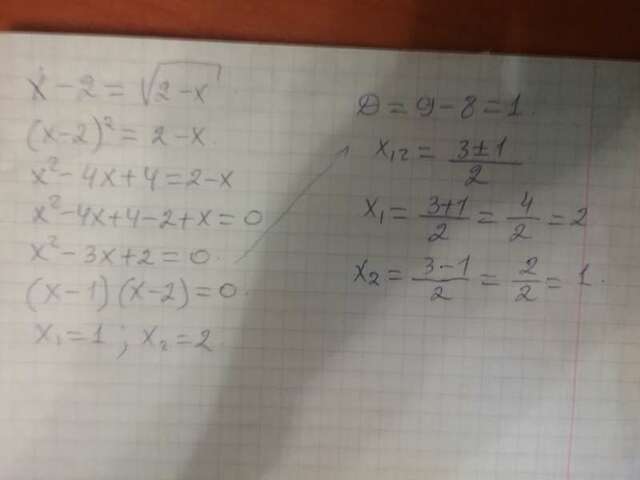 x - 2 = √2 - x
(x-2)² = 2 - x
x² - 4x + 4 = 2 - x
x² - 4x + 4 - 2 + x = 0
x² - 3x + 2 = 0
(x-1)(x-2) = 0
x₁ = 1 ; x₂ = 2
D = 9 - 8 = 1
x₁,₂ = 3±1/2
x₁ = 3+1/2 = 4/2 = 2
x₂ = 3-1/2 = 2/2 = 1.